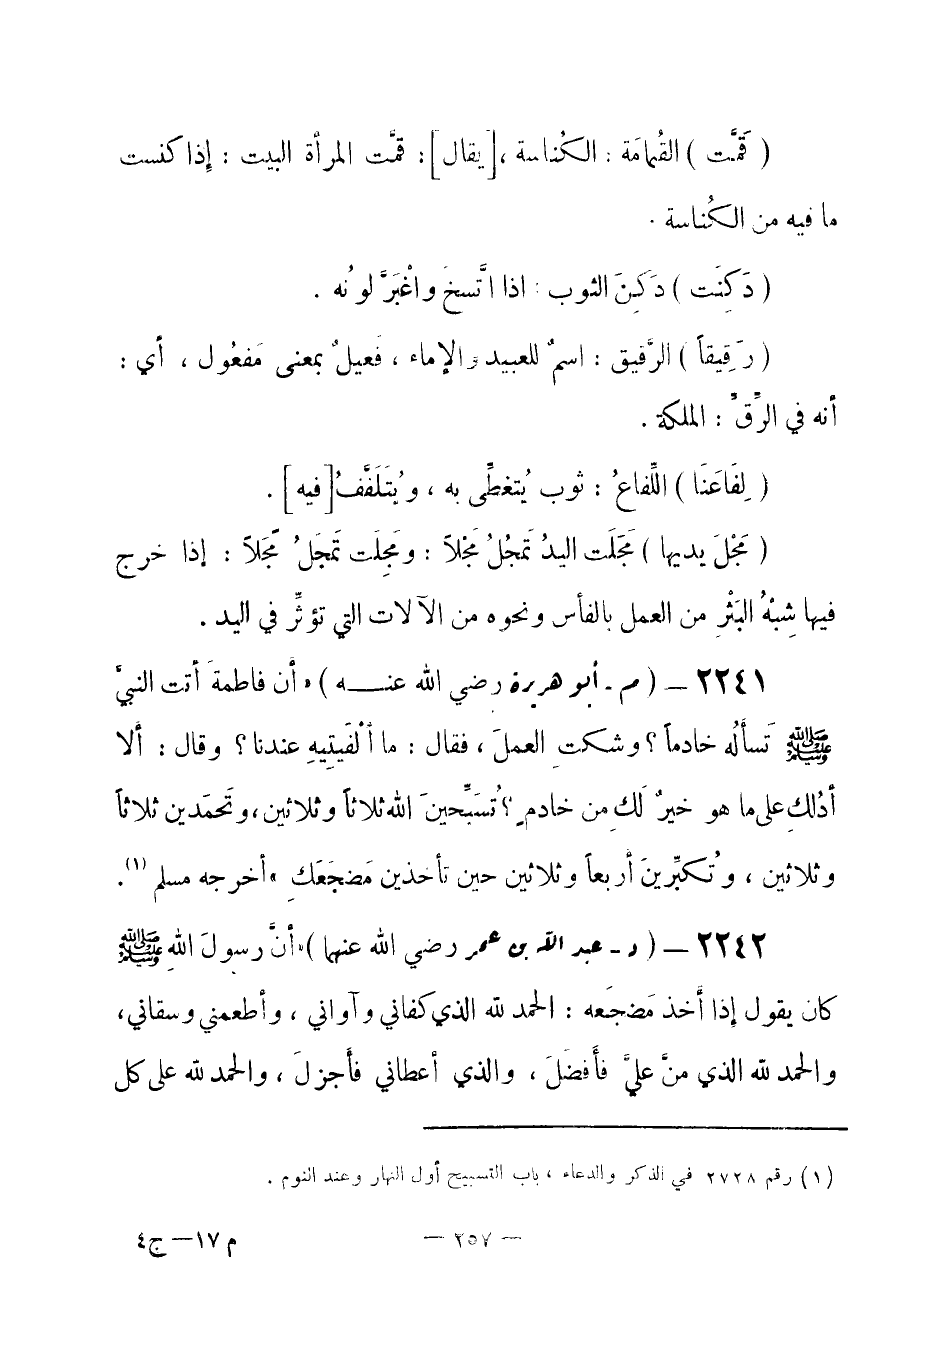 ( قَمَّت ) القُمامَة : الكُناسة ، [ يقال ] : قمَّت المرأة البيت : إذا كنست
ما فيه من الكُناسة .
( دَكِنَت ) دَكِنَ الثوب : اذا اتَّسخَ واغْبَرَّ لونُه .
( رَقِيقاً ) الرَّقيق : اسمٌ للعبيد والإماء ، فَعيلٌ بمعنى مَفعُول ، أي :
أنه في الرِّقِّ : الملكة .
( لِفَاعَنَا ) اللِّفاعُ : ثوب يُتغطَّى به ، ويُتَلَفَّفُ [ فيه ] .
( مَجْلَ يديها ) مَجَلَت اليدُ تَمجُلُ مَجْلاً : ومَجِلَت تَمجَلُ مَجَلاً : إذا خرج
فيها شِبْهُ البَثْرِ من العمل بالفأس ونحوه من الآلات التي تؤثِّر في اليد .
٢٢٤١ – ( م - أبو هريرة رضي الله عنه ) « أن فاطمةَ أتت النبيَّ
ﷺ تَسألُه خادماً ؟ وشكت العملَ ، فقال : ما ألْفَيتِيهِ عندنا ؟ وقال : ألا
أدُلكِ على ما هو خيرٌ لَكِ من خادمٍ ؟ تُسَبِّحينَ الله ثلاثاً وثلاثين ، وتَحمَدين ثلاثاً
وثلاثين ، وتُكبِّرينَ أربعاً وثلاثين حين تأخذين مَضجَعَكِ » أخرجه مسلم (١) .
٢٢٤٢ – ( د - عبد الله بن عمر رضي الله عنهما ) « أنَّ رسولَ الله ﷺ
كان يقول إذا أَخذ مَضجَعه : الحمد لله الذي كفاني وآواني ، وأطعمني وسقاني ،
والحمد لله الذي منَّ عليَّ فأَفضَلَ ، والذي أعطاني فأَجزلَ ، والحمد لله على كل
(١) رقم ٢٧٢٨ في الذكر والدعاء ، باب التسبيح أول النهار وعند النوم .
– ٢٥٧ –
م ١٧ – ج ٤